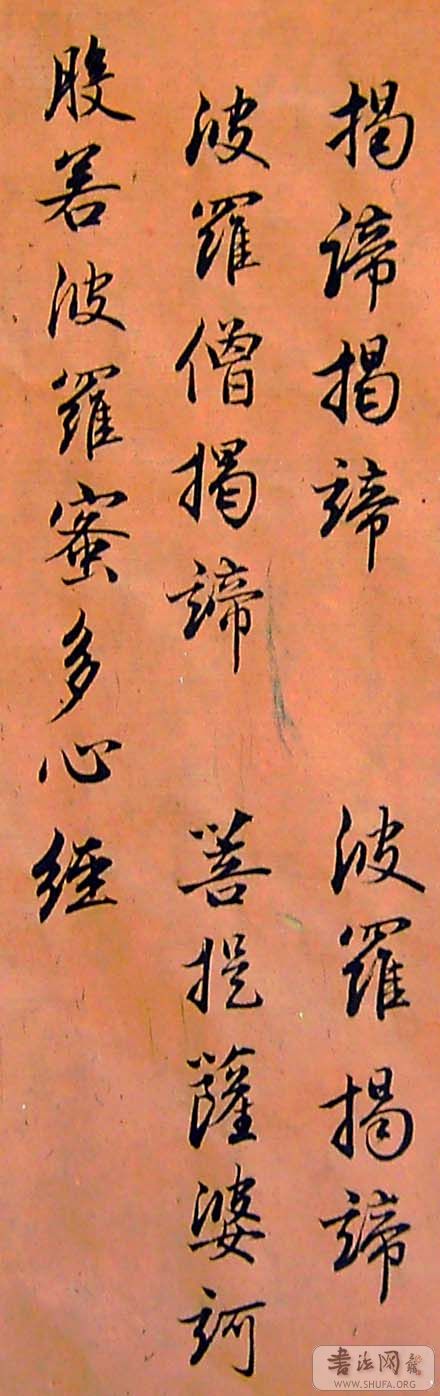 揭諦揭諦 波羅揭諦
波羅僧揭諦 菩提薩婆訶
般若波羅蜜多心經
書法网
WWW.SHUFA.ORG